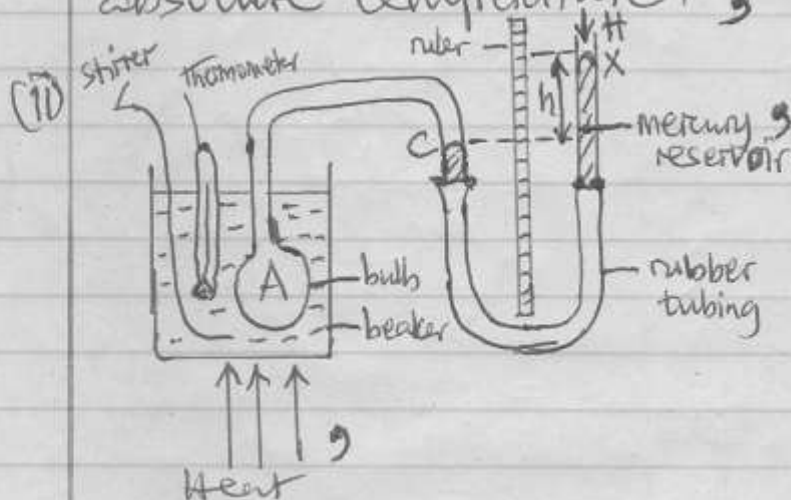 absolute temperature.
(ii)
stirrer
Thermometer
ruler
H
X
h
C
mercury
reservoir
A
bulb
beaker
rubber
tubing
Heat